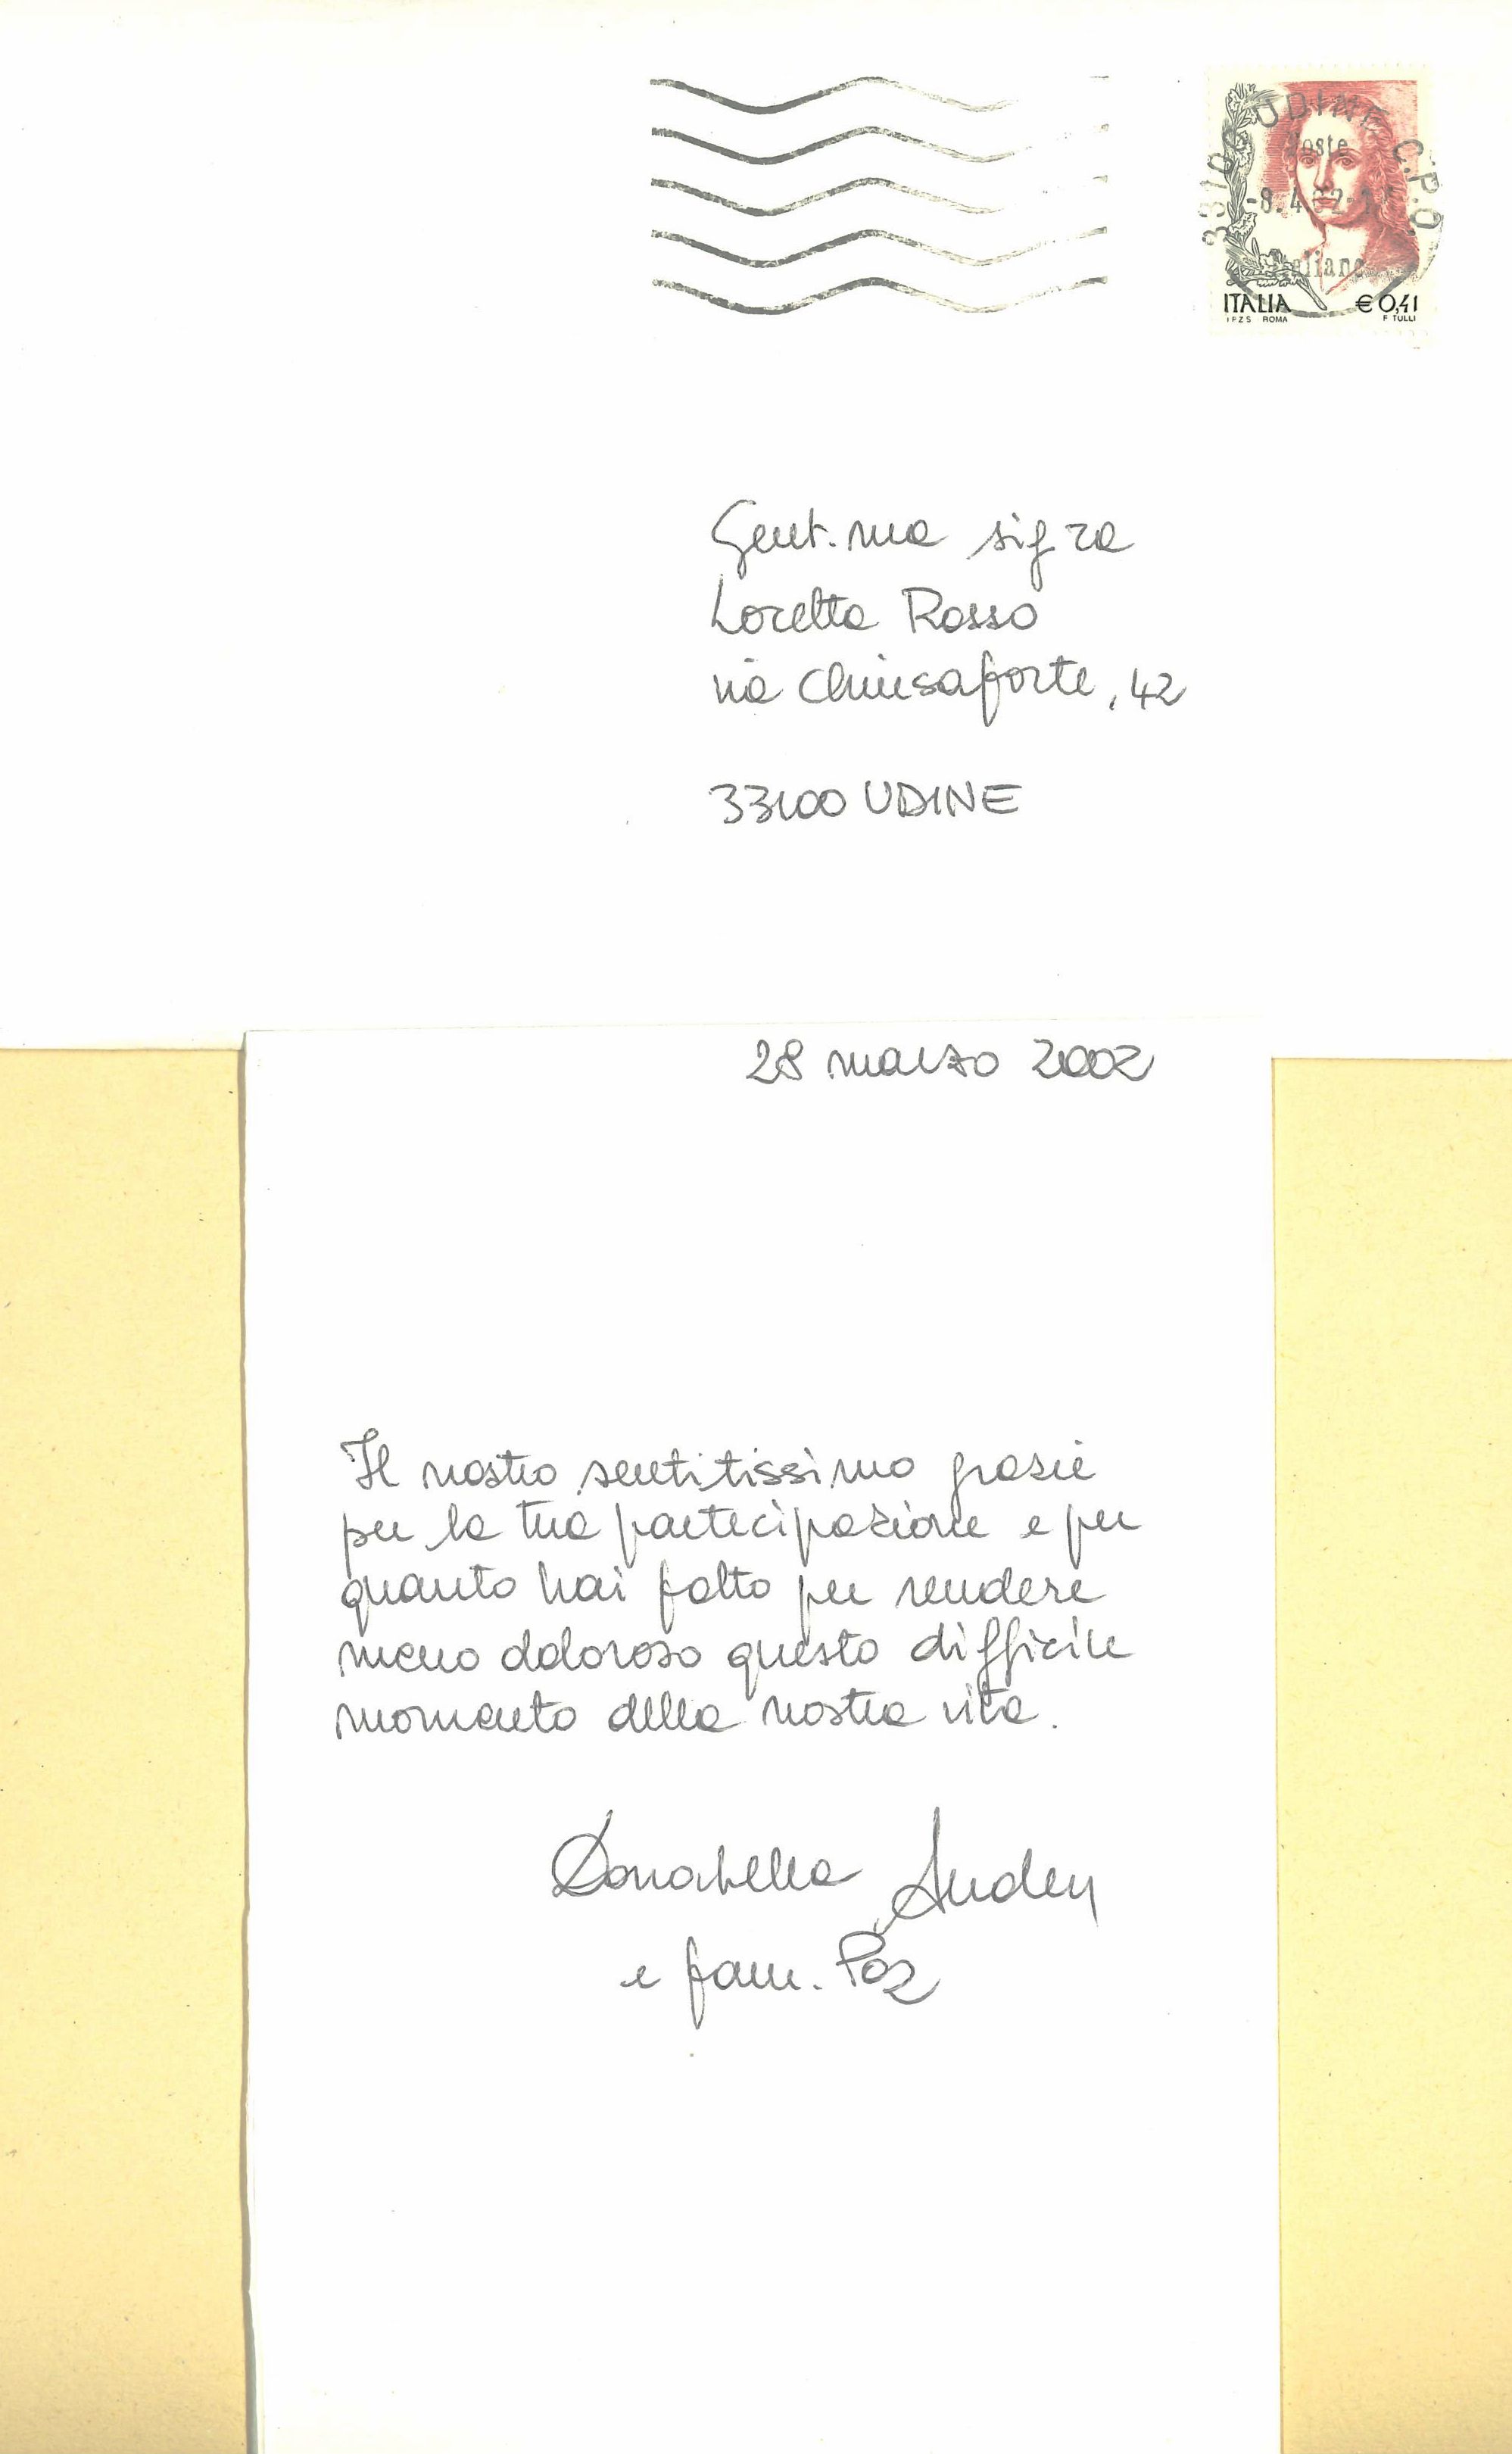 33100 UDINE C.P.O.
Poste
-8.4.02-
Italiane
ITALIA € 0,41
I.P.Z.S. ROMA F. TULLI
Gent.ma sig.ra
Loretta Rosso
via Chiusaforte, 42
33100 UDINE
28 marzo 2002
Il nostro sentitissimo grazie
per la tua partecipazione e per
quanto hai fatto per rendere
meno doloroso questo difficile
momento della nostra vita.
Donatella
e fam. Paz